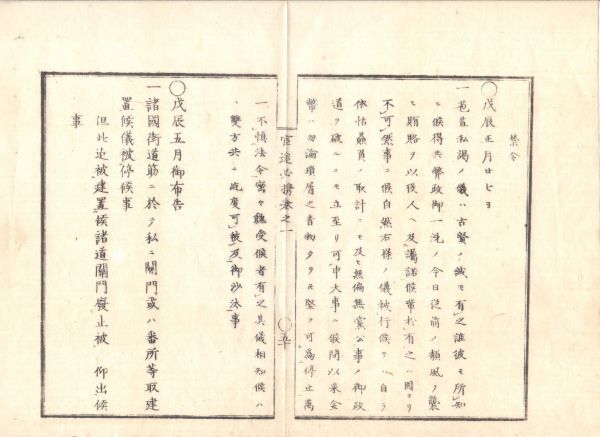 禁令
◯戊辰正月廿七日
一苞苴私謁ノ儀ハ古賢ノ誡モ有之誰彼モ所知
ニ候得共弊政御一洗ノ今日従前ノ頽風ヲ襲
ヒ賄賂ヲ以役人ヘ及囑託候輩於有之ハ固ヨリ
不可然事ニ候自然右様ノ儀被行候テハ自ラ
依怙贔負ノ取計ニモ及ヒ無偏無黨公事ノ御政
道ヲ破ルニモ立至リ可申大事ニ候間以来金
幣ハ勿論瑣屑之音物タリモ堅ク可為停止萬
一不慎法令賓々餽受候者有之其儀相知候ハ
、雙方共ニ屹度可被及御沙汰事
官途必携巻之一
◯五十
◯戊辰五月御布告
一諸國街道筋ニ於テ私ニ關門或ハ番所等取建
置候儀被停候事
但此迄被建置候諸道關門廢止被 仰出候
事